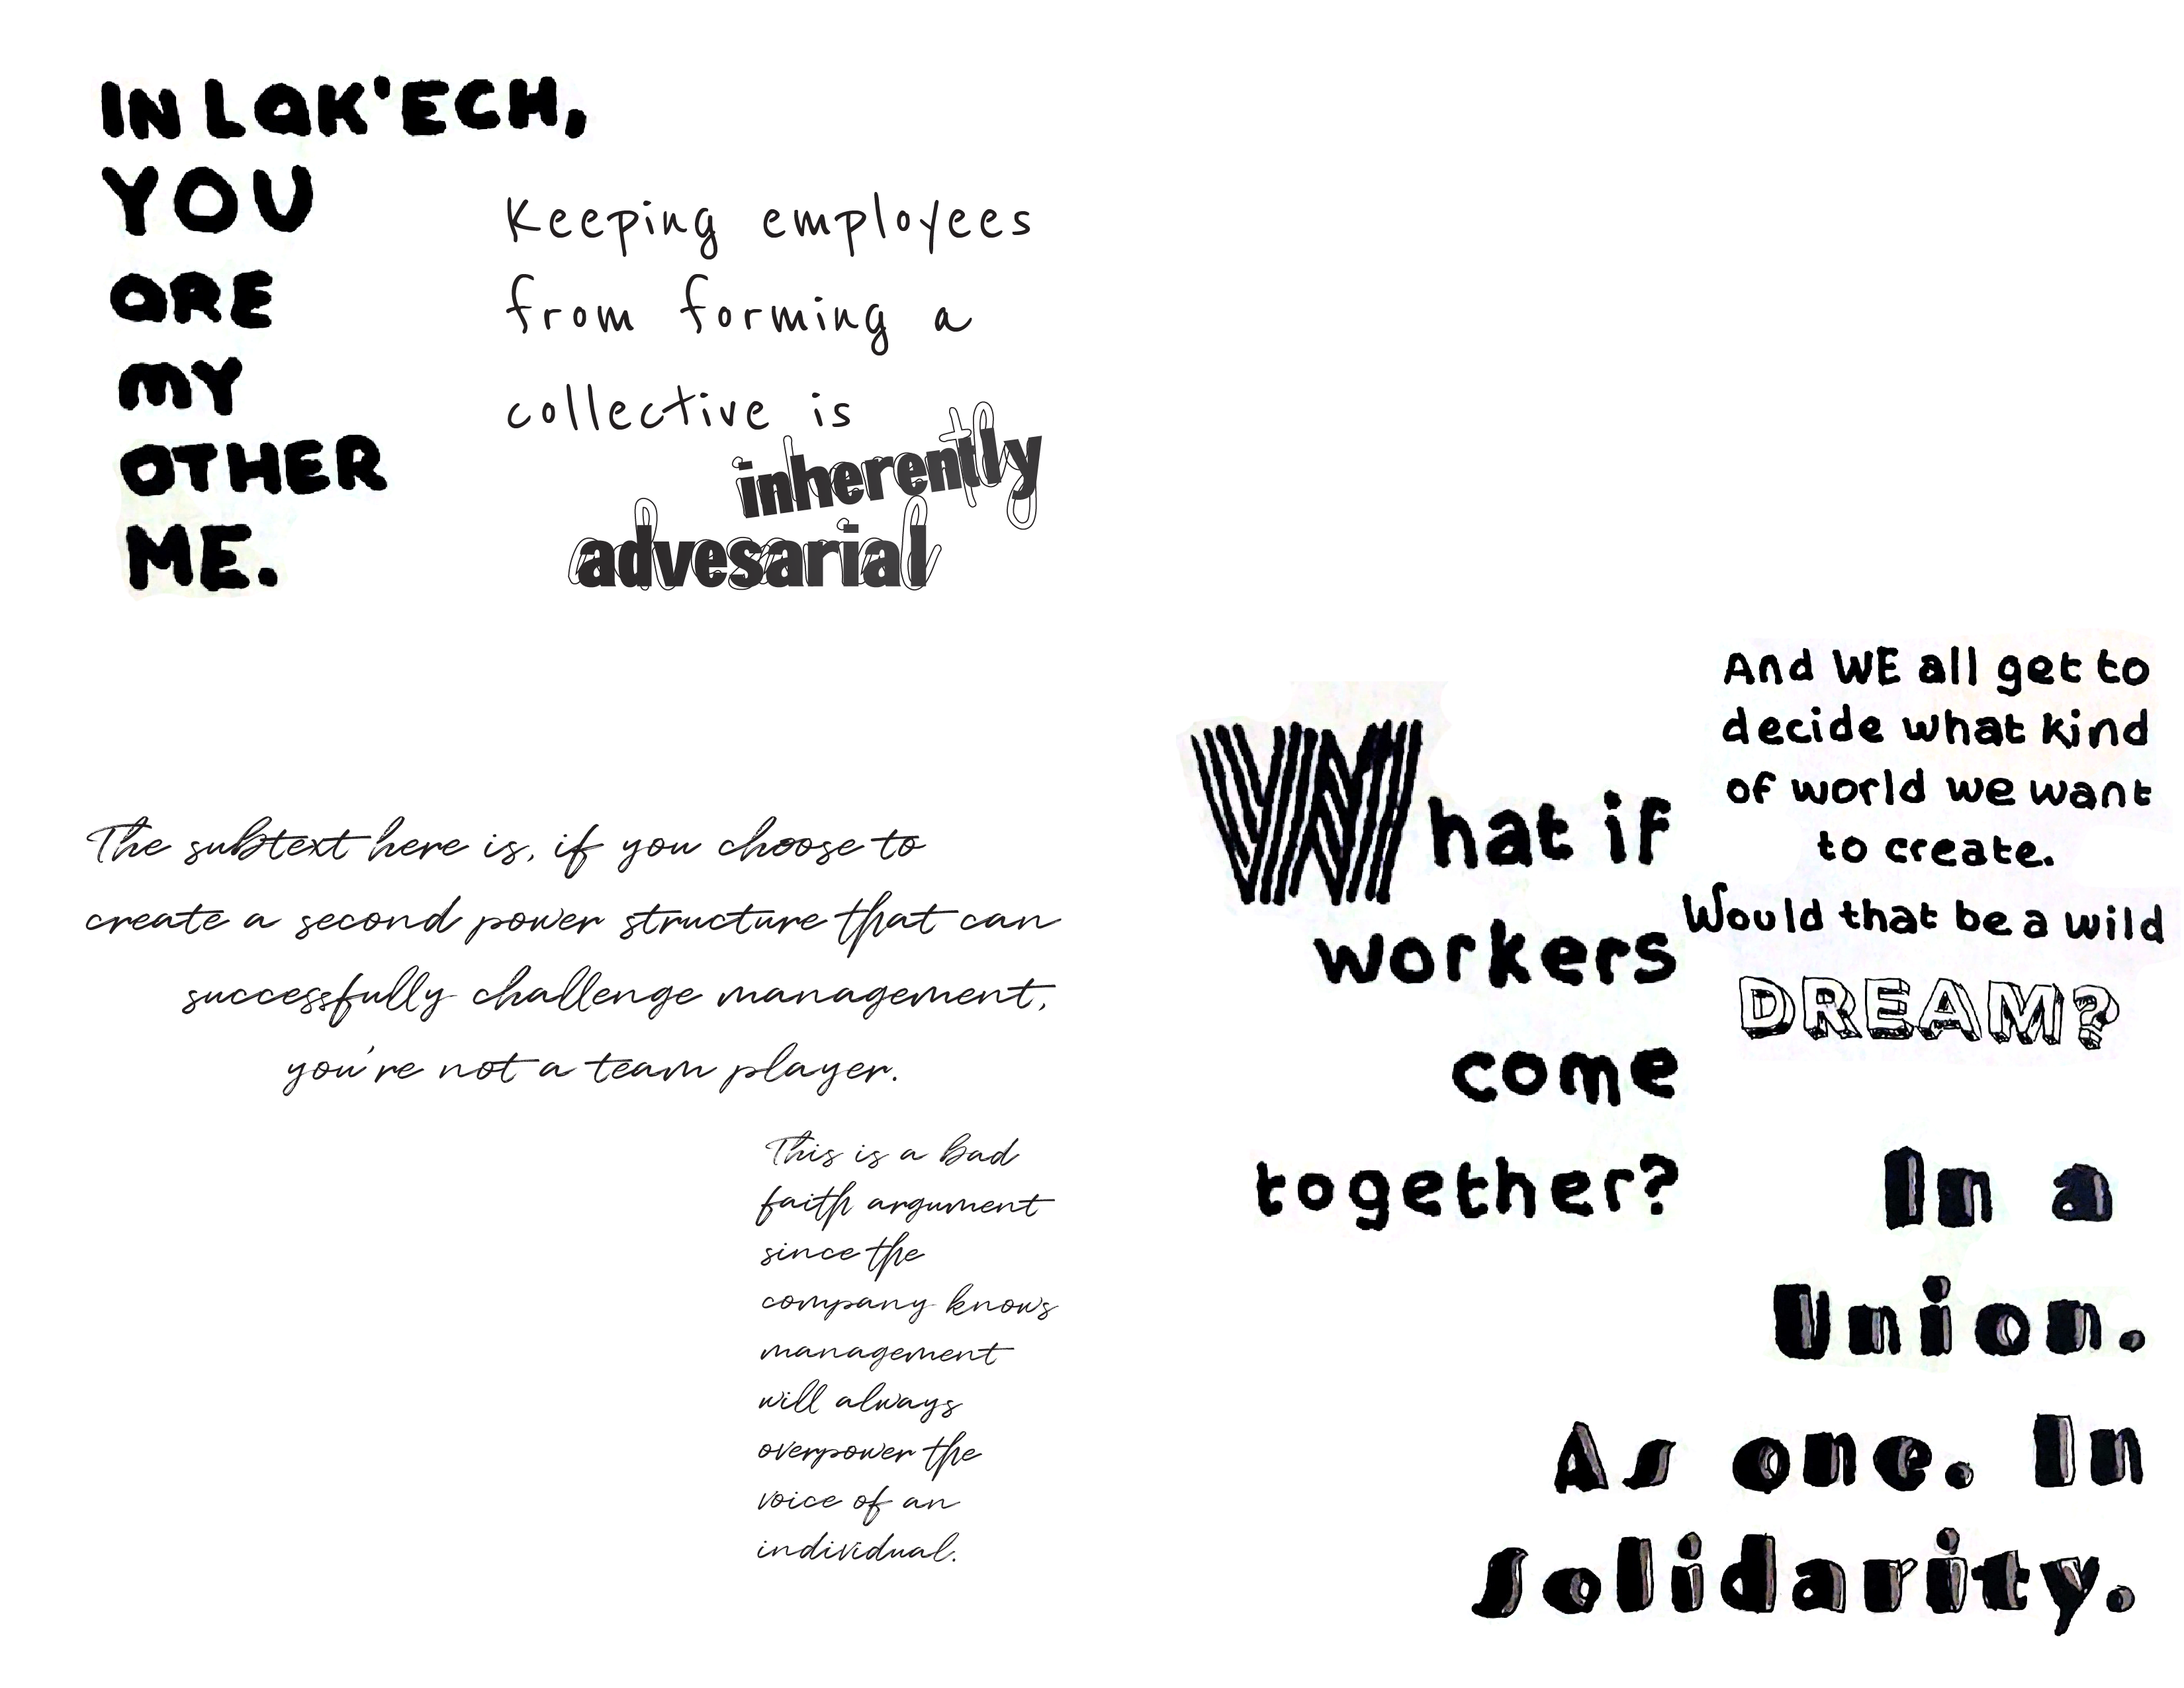 IN LaK'ECH,
YOU
aRE
mY
OTHER
ME.
Keeping employees
from forming a
collective is
inherently
advesarial
The subtext here is, if you choose to
create a second power structure that can
successfully challenge management,
you're not a team player.
This is a bad
faith argument
since the
company knows
management
will always
overpower the
voice of an
individual.
What if
workers
come
together?
And WE all get to
decide what kind
of world we want
to create.
Would that be a wild
DREAM?
In a
Union.
As one. In
Solidarity.